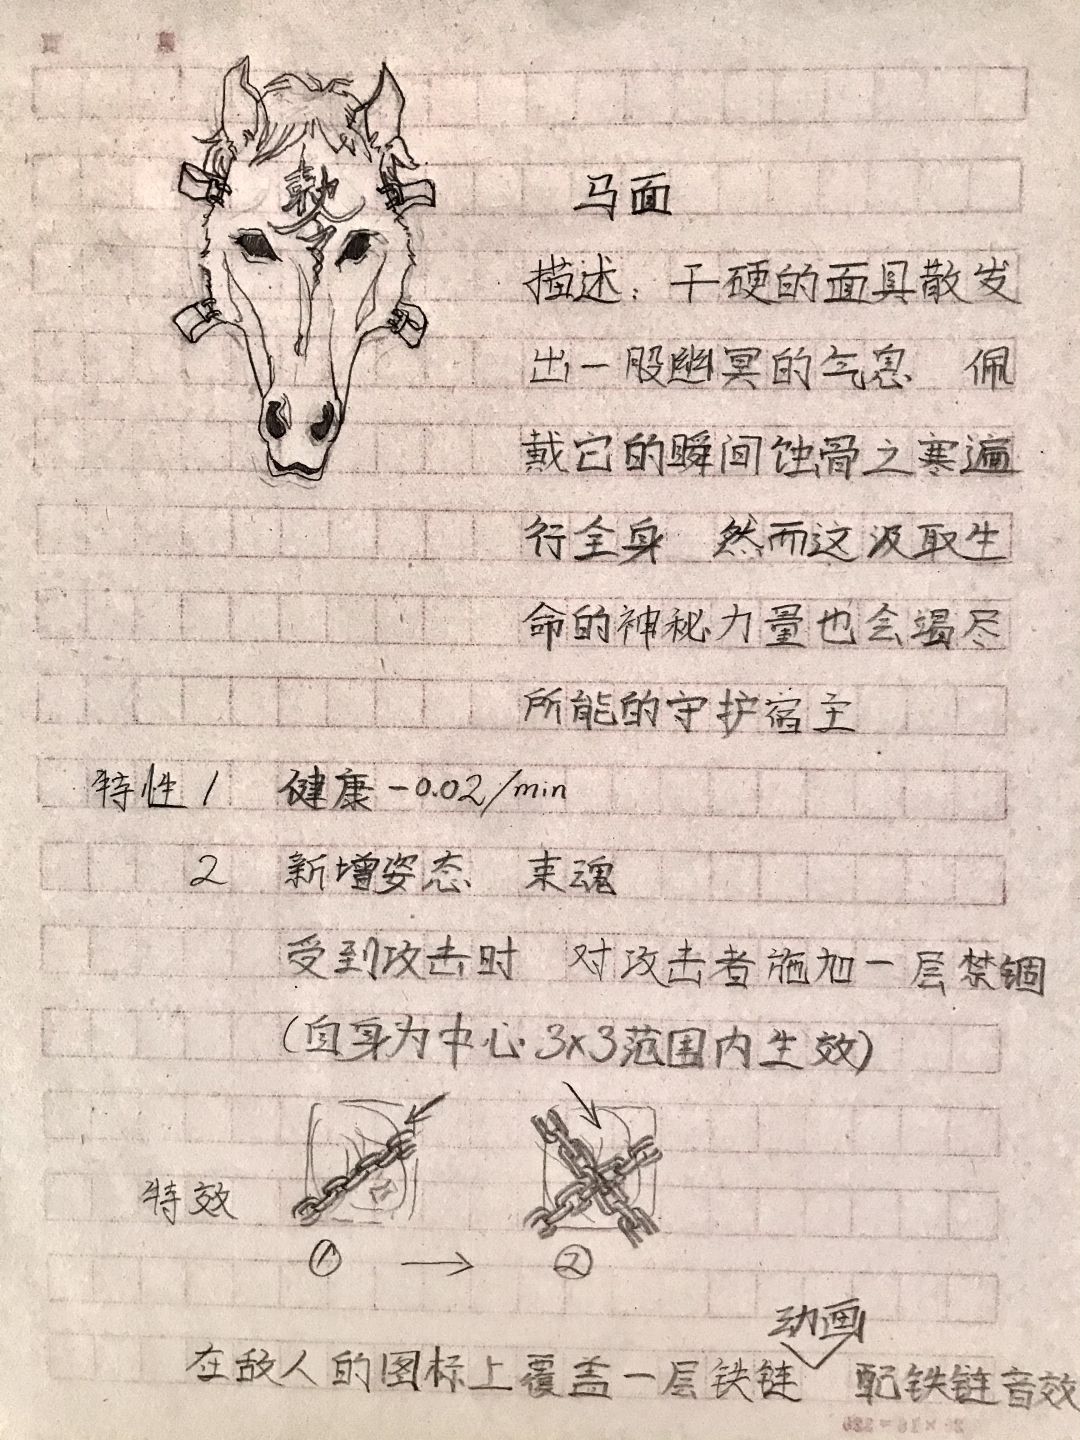 敕
马面
描述：干硬的面具散发
出一股幽冥的气息 佩
戴它的瞬间蚀骨之寒遍
行全身 然而这汲取生
命的神秘力量也会竭尽
所能的守护宿主
特性1 健康-0.02/min
2 新增姿态 束魂
受到攻击时 对攻击者施加一层禁锢
(自身为中心 3x3范围内生效)
特效
① → ②
动画
在敌人的图标上覆盖一层铁链 配铁链音效